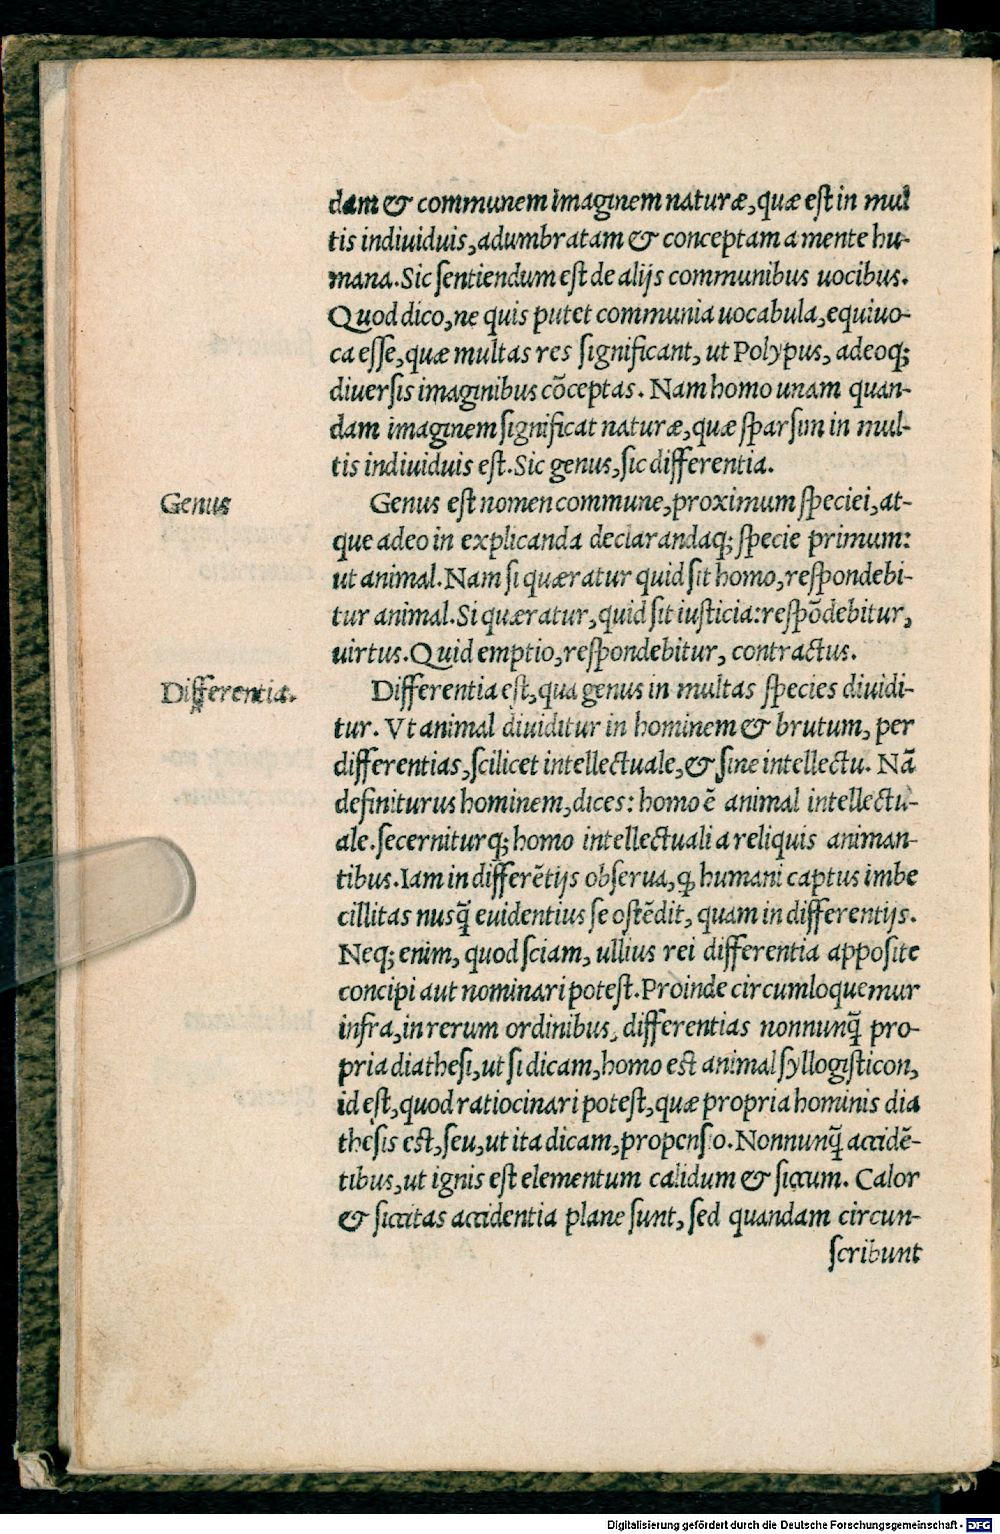 dam & communem imaginem naturæ, quæ est in mul
tis indiuiduis, adumbratam & conceptam a mente hu-
mana. Sic sentiendum est de alijs communibus uocibus.
Quod dico, ne quis putet communia uocabula, equiuo-
ca esse, quæ multas res significant, ut Polypus, adeoq;
diuersis imaginibus cõceptas. Nam homo unam quan-
dam imaginem significat naturæ, quæ sparsim in mul-
tis indiuiduis est. Sic genus, sic differentia.
Genus
Genus est nomen commune, proximum speciei, at-
que adeo in explicanda declarandaq; specie primum:
ut animal. Nam si quæratur quid sit homo, respondebi-
tur animal. Si quæratur, quid sit iusticia: respõdebitur,
uirtus. Quid emptio, respondebitur, contractus.
Differentia.
Differentia est, qua genus in multas species diuidi-
tur. Vt animal diuiditur in hominem & brutum, per
differentias, scilicet intellectuale, & sine intellectu. Nã
definiturus hominem, dices: homo ẽ animal intellectu-
ale. secerniturq; homo intellectuali a reliquis animan-
tibus. Iam in differẽtijs obserua, ꝙ humani captus imbe
cillitas nusq̃ euidentius se ostẽdit, quam in differentijs.
Neq; enim, quod sciam, ullius rei differentia apposite
concipi aut nominari potest. Proinde circumloquemur
infra, in rerum ordinibus, differentias nonnunq̃ pro-
pria diathesi, ut si dicam, homo est animal syllogisticon,
id est, quod ratiocinari potest, quæ propria hominis dia
thesis est, seu, ut ita dicam, propensio. Nonnunq̃ accidẽ-
tibus, ut ignis est elementum calidum & siccum. Calor
& siccitas accidentia plane sunt, sed quandam circun-
scribunt
Digitalisierung gefördert durch die Deutsche Forschungsgemeinschaft - DFG